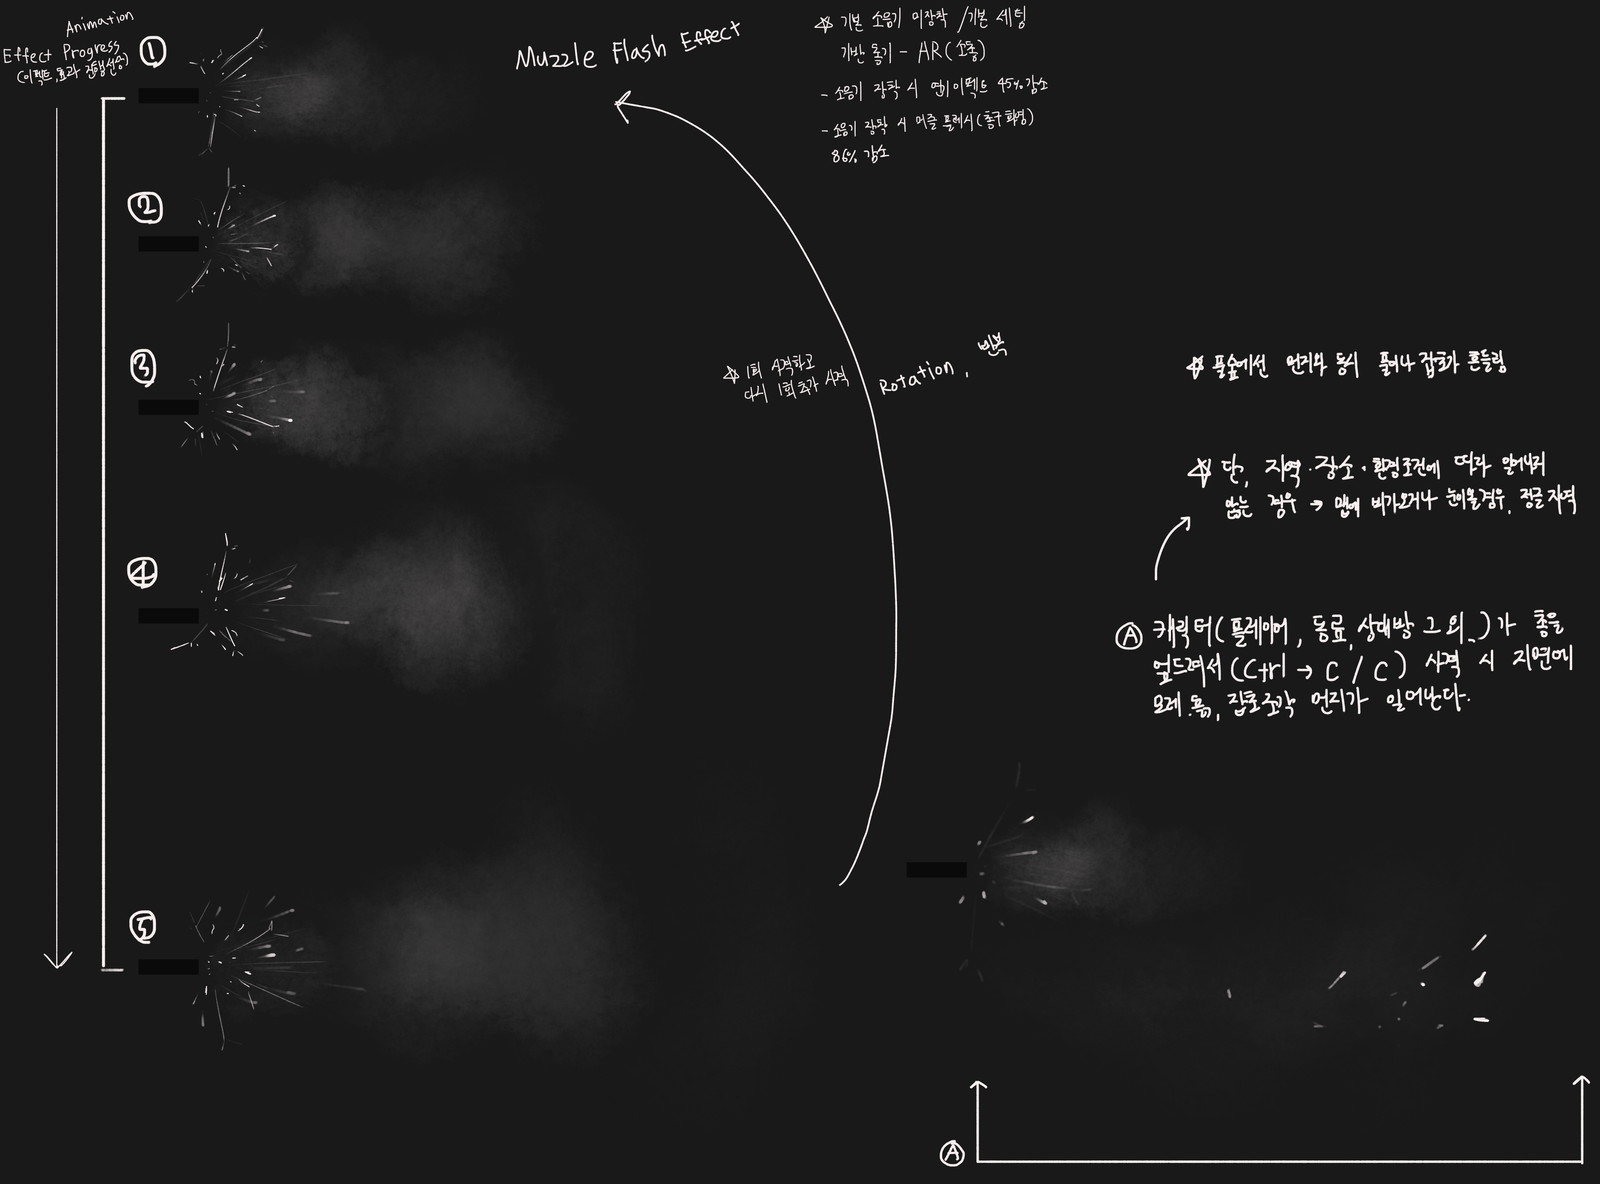 Animation
Effect Progress
(이펙트, 효과 진행순응)
①
②
③
④
⑤
Muzzle Flash Effect
☆ 기본 소음기 미장착 / 기본 세팅
기반 동기 - AR (소총)
- 소음기 장착 시 연기 이펙트 45% 감소
- 소음기 장착 시 머즐 플레시 (총구 화염)
86% 감소
☆ 1회 사격하고
다시 1회 추가 사격
Rotation, 반복
☆ 풀숲에선 먼지와 동시 풀이나 잡초가 흔들림
☆ 단, 지역·장소·환경조건에 따라 일어나지
않는 경우 → 맵에 비가오거나 눈이올경우, 정글지역
Ⓐ 캐릭터(플레이어, 동료, 상대방 그 외..)가 총을
엎드려서 (Ctrl → C / C) 사격 시 지면에
모래, 흙, 잡초조각 먼지가 일어난다.
Ⓐ